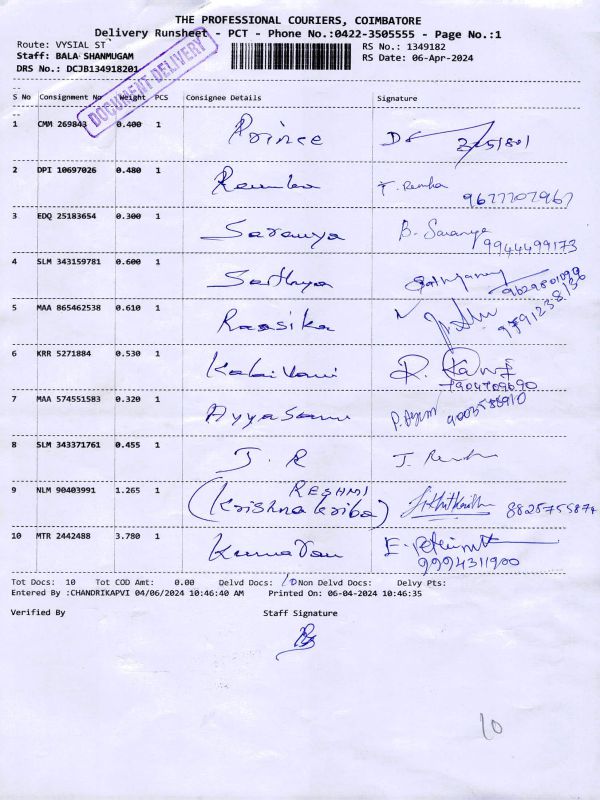 THE PROFESSIONAL COURIERS, COIMBATORE
Delivery Runsheet - PCT - Phone No.:0422-3505555 - Page No.:1
Route: VYSIAL ST RS No.: 1349182
Staff: BALA SHANMUGAM RS Date: 06-Apr-2024
DRS No.: DCJB134918201
DOCUMENT DELIVERY
S No Consignment No Weight PCS Consignee Details Signature
1 CMM 269843 0.400 1 Prince
2 DPI 10697026 0.480 1 Renuka T. Renuka
9677707967
3 EDQ 25183654 0.300 1 Saranya B. Saranya
9944499173
4 SLM 343159781 0.600 1 Sathya
5 MAA 865462538 0.610 1 Raasika
9791238136
6 KRR 5271884 0.530 1 Kalaivani
7904709690
7 MAA 574551583 0.320 1 Ayyasami
8 SLM 343371761 0.455 1 J. R
9 NLM 90403991 1.265 1 RESHMI
(Krishna kriba)
10 MTR 2442488 3.780 1 Kumaran
9994311900
Tot Docs: 10 Tot COD Amt: 0.00 Delvd Docs: 10 Non Delvd Docs: Delvy Pts:
Entered By :CHANDRIKAPVI 04/06/2024 10:46:40 AM Printed On: 06-04-2024 10:46:35
Verified By Staff Signature
10